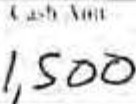 Cash Amt
1,500